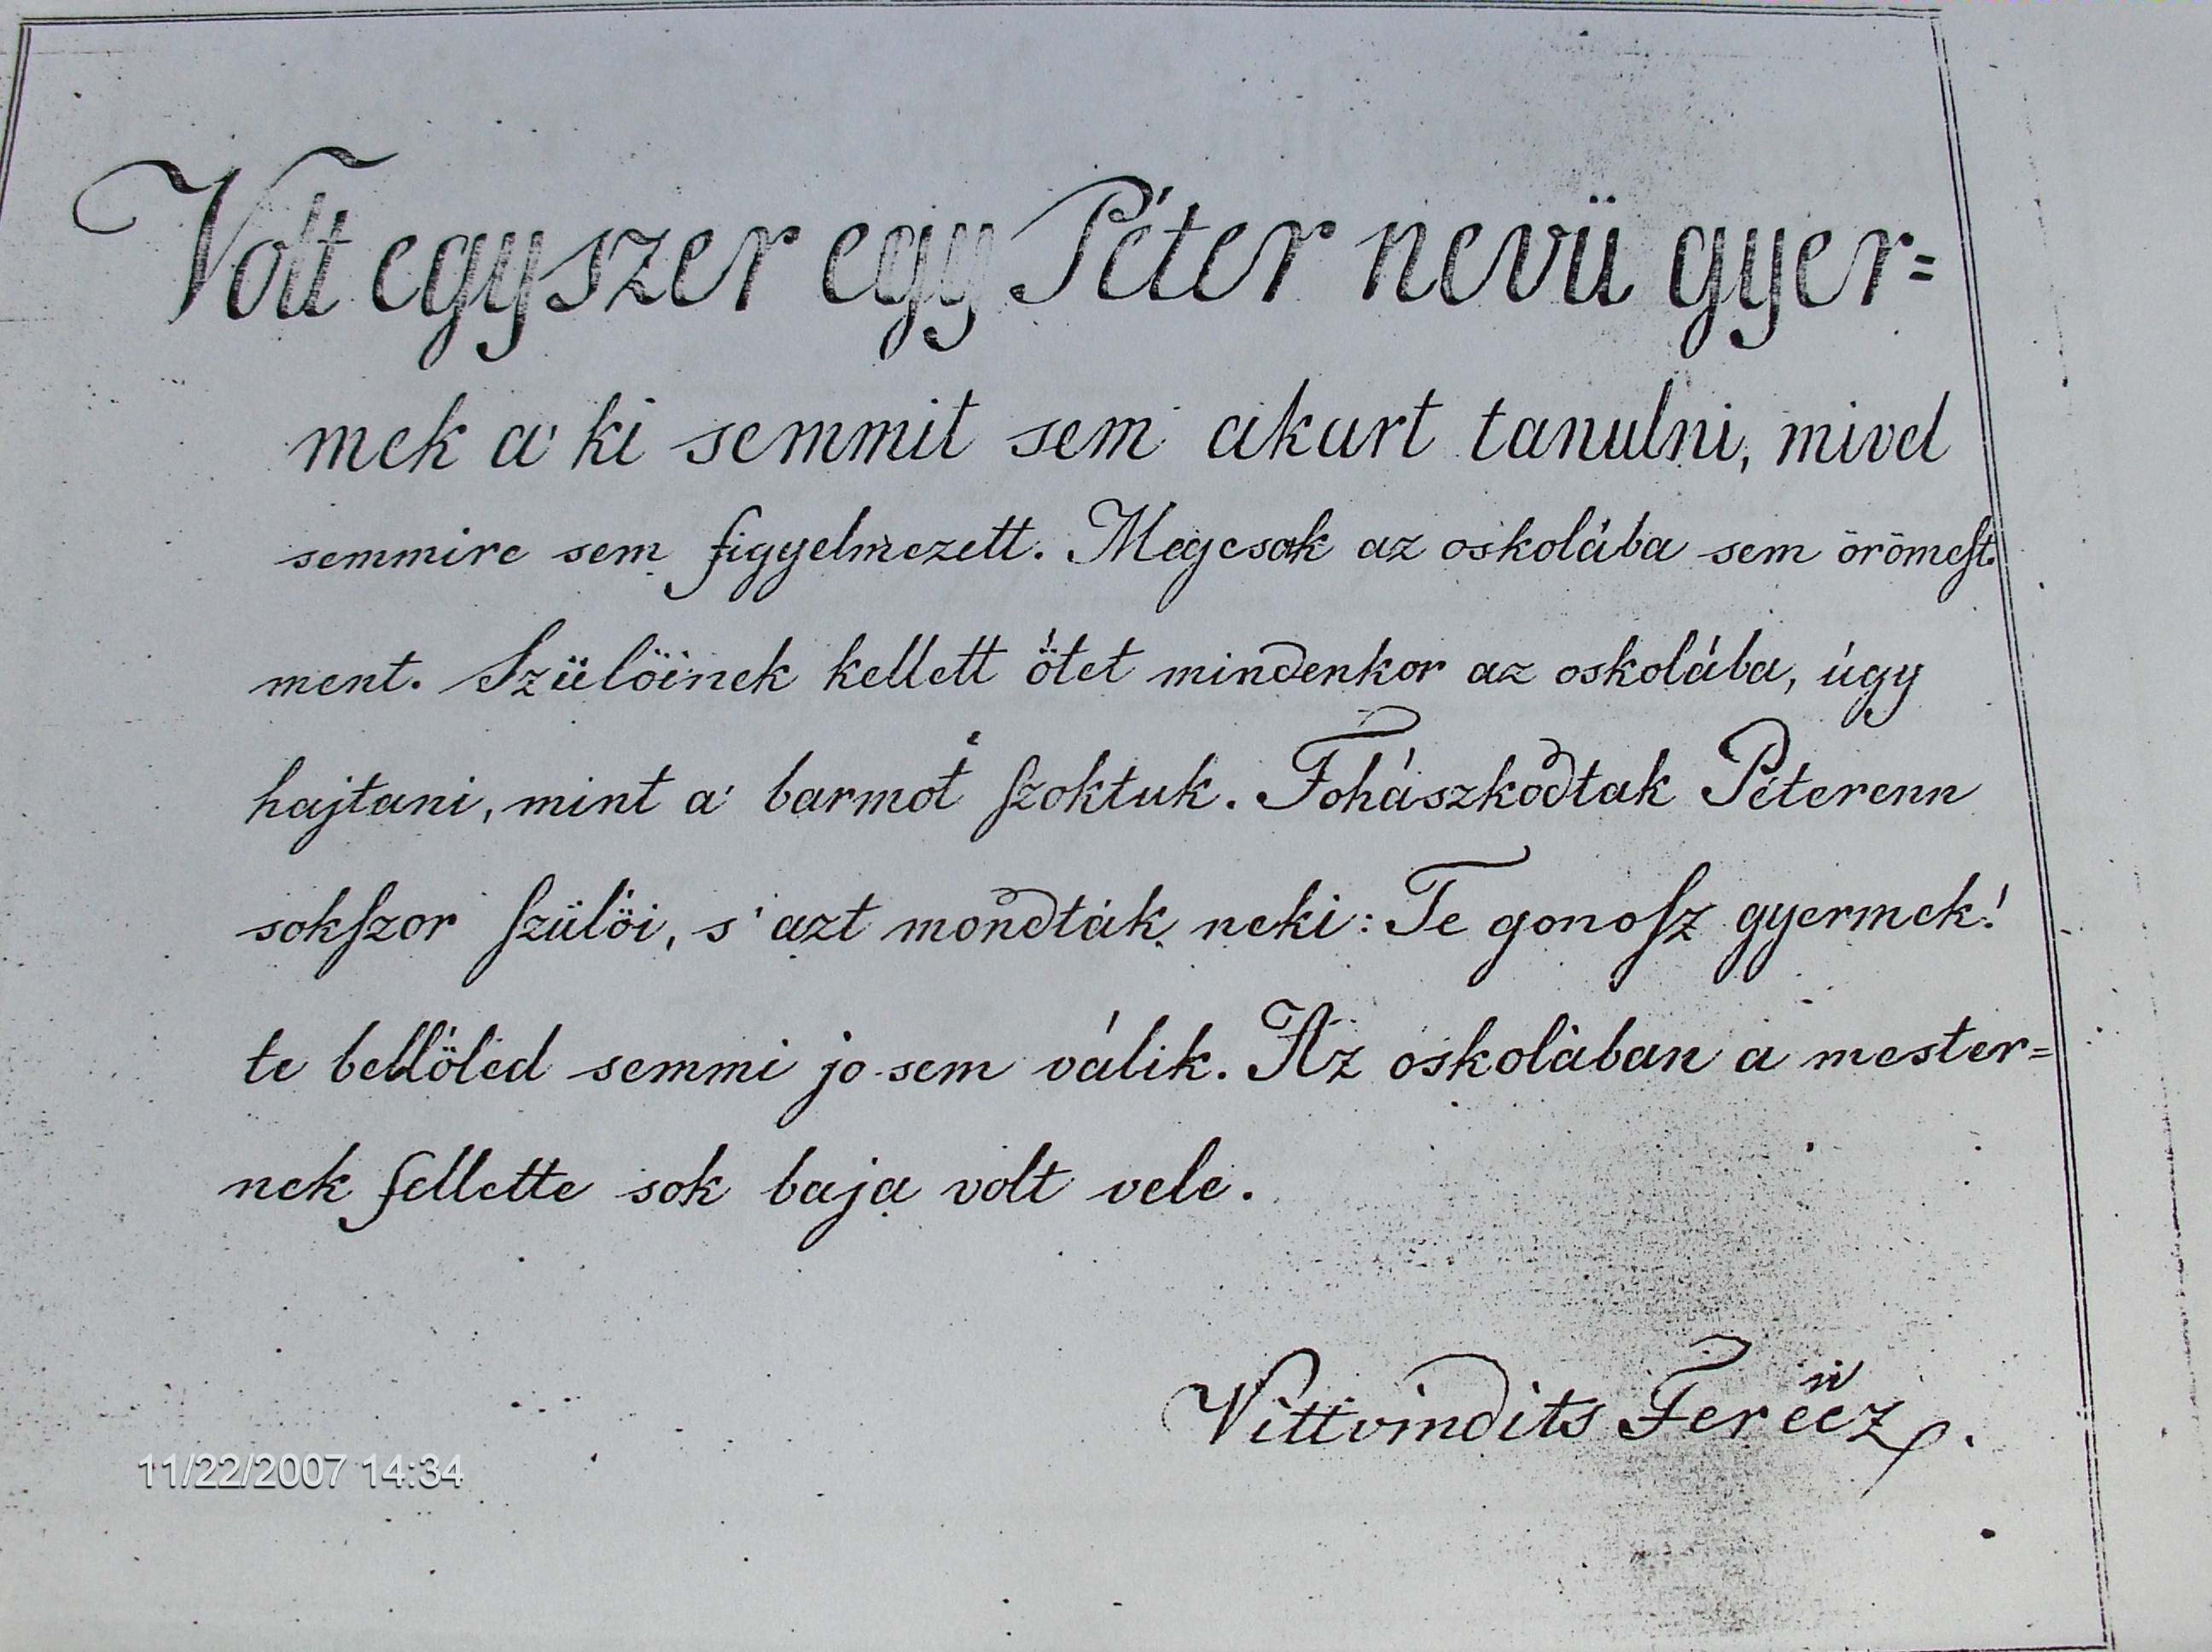 Volt egyszer egy Péter nevü gyer=
mek a' ki semmit sem akart tanulni, mivel
semmire sem figyelmezett. Megcsak az oskolába sem örömeſt
ment. Szülöinek kellett ötet mindenkor az oskolába, úgy
hajtani, mint a' barmot ſzoktuk. Fohászkodtak Péterenn
sokſzor ſzülöi, s' azt mondták neki: Te gonoſz gyermek!
te bellöled semmi jo sem válik. Az oskolában a mester=
nek fellette sok baja volt vele.
Vittvindits Ferencz.
11/22/2007 14:34